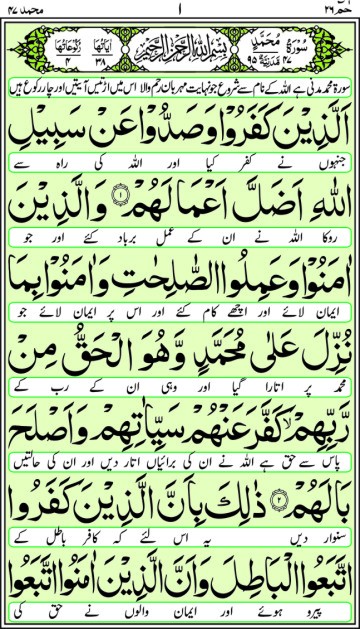 حم ٢٦ ١ محمد ٤٧
سورة محمد ٤٧ مدنية ٩٥ بسم الله الرحمن الرحيم آياتها ٣٨ ركوعاتها ٤
سورۃ محمد مدنی ہے اللہ کے نام سے شروع جو نہایت مہربان رحم والا اس میں اڑتیس آیتیں اور چار رکوع ہیں
اَلَّذِيْنَ كَفَرُوْا وَصَدُّوْا عَنْ سَبِيْلِ
جنہوں نے کفر کیا اور اللہ کی راہ سے
اللّٰهِ اَضَلَّ اَعْمَالَهُمْ ۝۱ وَالَّذِيْنَ
روکا اللہ نے ان کے عمل برباد کئے اور جو
اٰمَنُوْا وَعَمِلُوا الصّٰلِحٰتِ وَاٰمَنُوْا بِمَا
ایمان لائے اور اچھے کام کئے اور اس پر ایمان لائے جو
نُزِّلَ عَلٰى مُحَمَّدٍ وَّهُوَ الْحَقُّ مِنْ
محمد پر اتارا گیا اور وہی ان کے رب کے
رَّبِّهِمْ ۙ كَفَّرَ عَنْهُمْ سَيِّاٰتِهِمْ وَاَصْلَحَ
پاس سے حق ہے اللہ نے ان کی برائیاں اتار دیں اور ان کی حالتیں
بَالَهُمْ ۝۲ ذٰلِكَ بِاَنَّ الَّذِيْنَ كَفَرُوا
سنوار دیں یہ اس لئے کہ کافر باطل کے
اتَّبَعُوا الْبَاطِلَ وَاَنَّ الَّذِيْنَ اٰمَنُوا اتَّبَعُوا
پیرو ہوئے اور ایمان والوں نے حق کی